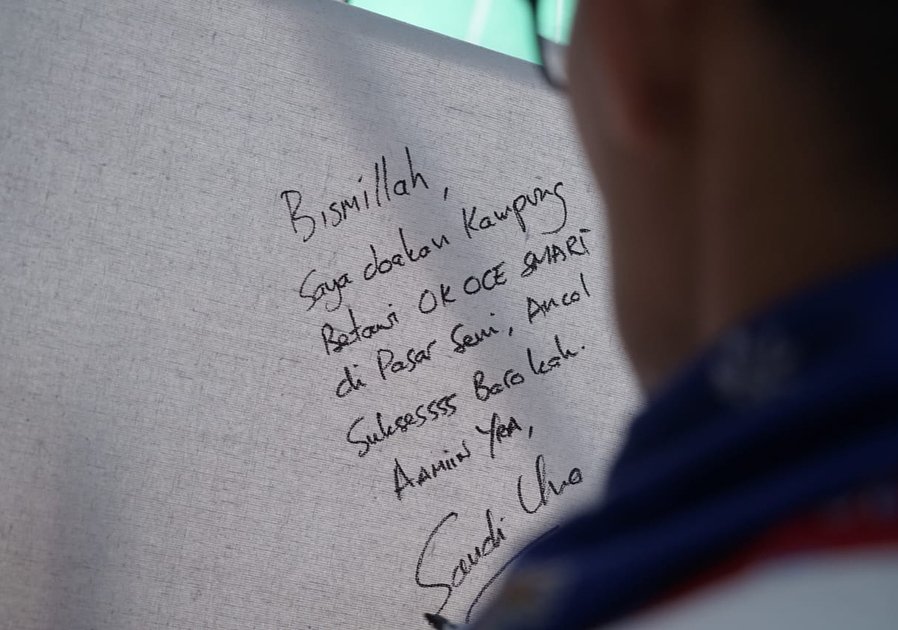 Bismillah,
Saya doakan Kampung
Betawi OK OCE SMART
di Pasar Seni, Ancol
Suksessss Barokah.
AAMIIN YRA,
Sandi Uno